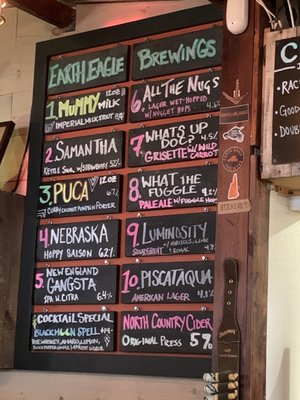 EARTH EAGLE
BREWINGS
1. MUMMY MILK 12.0Z
IMPERIAL MILK STOUT
2. SAMANTHA
KETTLE SOUR W/ STRAWBERRY
3. PUCA 12.0Z
PUMPKIN PORTER
4 NEBRASKA
HOPPY SAISON 6.2%
5. NEW ENGLAND
GANGSTA
IPA W. CITRA 6.4%
COCKTAIL SPECIAL
BLACK MOON SPELL
ROSEWHISKEY, AMARO, LEMON,
6. ALL THE NUGS
LAGER WET-HOPPED
W/ NUGGET HOPS
7 WHATS UP
DOC? 5%
GRISETTE W/ WILD
CARROT
8 WHAT THE
FUGGLE 4.2%
PALE ALE W/ FUGGLE HOPS
9. LUMINOSITY
SOURGRUIT W/
10. PISCATAQUA
AMERICAN LAGER
NORTH COUNTRY CIDER
ORIGINAL PRESS 5%
C
RAC
GOO
DO
STICKERS